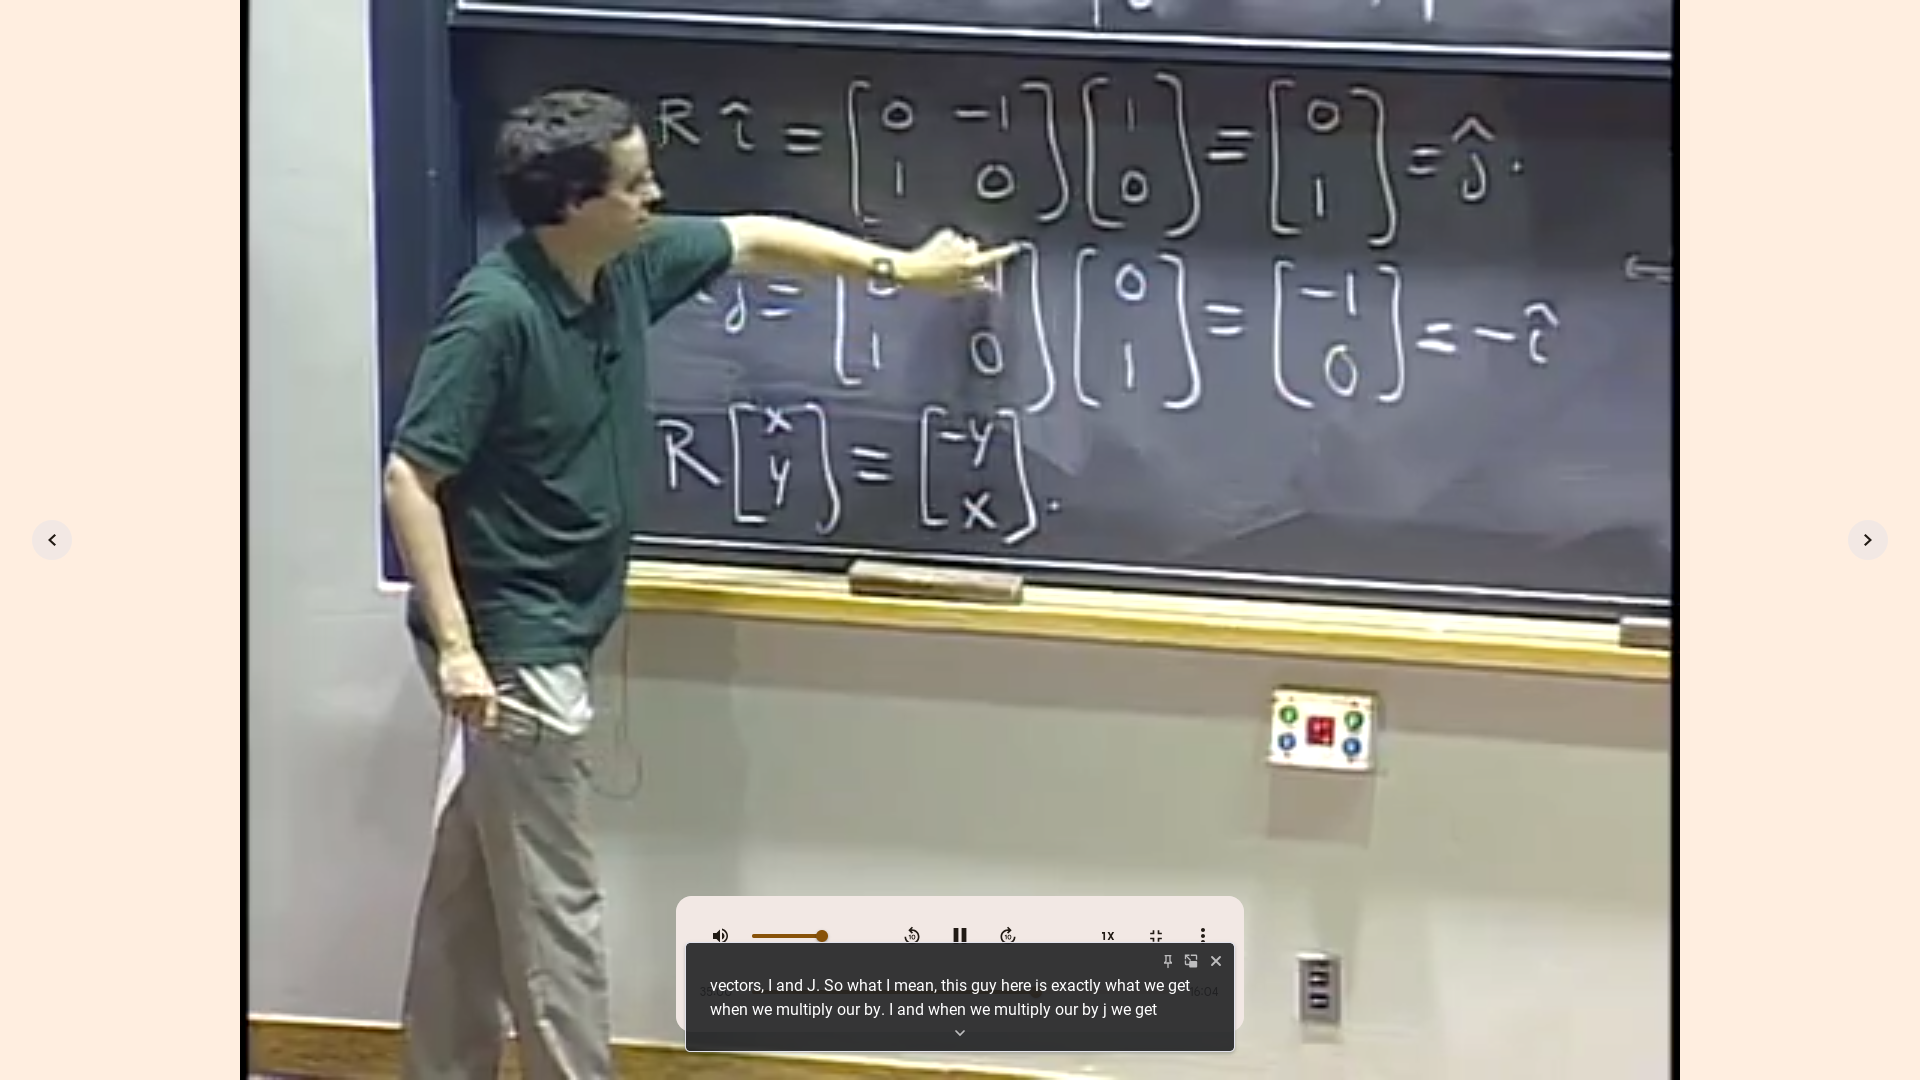 R î = [0 -1 1 0] [1 0] = [0 1] = ĵ.
j = [0 1 0] [0 1] = [-1 0] = -î
R [x y] = [-y x].
1X
vectors, I and J. So what I mean, this guy here is exactly what we get
when we multiply our by. I and when we multiply our by j we get